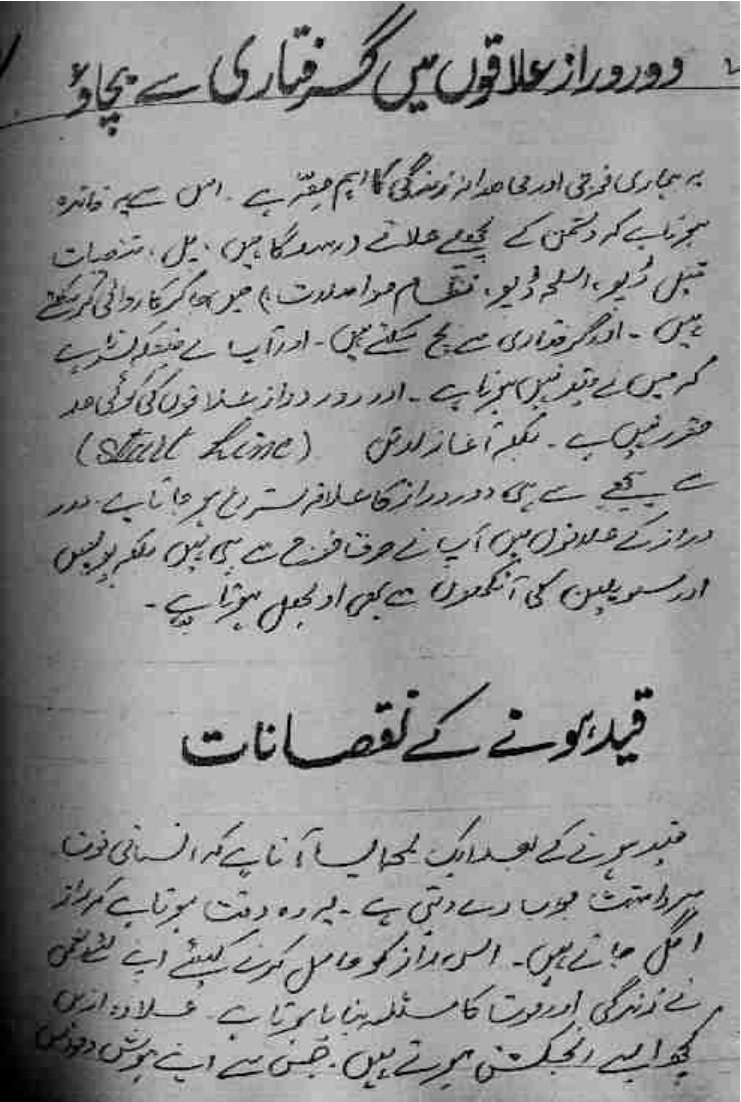 دور دراز علاقوں میں گرفتاری سے بچاؤ
یہ ہماری فوجی اور مجاہدانہ زندگی کا اہم حصّہ ہے۔ اس سے یہ فائدہ
ہوتا ہے کہ دشمن کے پچھلے علاقے درسدگاہیں، پل، تنصیبات
ڈپو، اسلحہ ڈپو، نظام مواصلات) میں جا کر کاروائی کر سکتے
ہیں۔ اور گرفتاری سے بچ سکتے ہیں۔ اور آپ نے
کہ میں نے قید نہیں ہونا ہے۔ اور دور دراز علاقوں کی کوئی حد
مقرر نہیں ہے۔ بلکہ آغاز لائن (Start Line)
سے پیچھے سے ہی دور دراز کا علاقہ شروع ہو جاتا ہے۔ دور
دراز کے علاقوں میں آپ نے صرف فوج سے ہی نہیں بلکہ پولیس
اور سویلین کی آنکھوں سے بھی اوجھل ہونا ہے۔
قید ہونے کے نقصانات
قید ہونے کے بعد ایک لمحہ ایسا آتا ہے کہ انسانی قوت
برداشت جواب دے دیتی ہے۔ یہ وہ وقت ہوتا ہے کہ راز
اگل جاتے ہیں۔ اس راز کو حاصل کرنے کیلئے اپنے لئے
نے زندگی اور موت کا مسئلہ بنایا ہوتا ہے۔ علاوہ ازیں
کچھ ایسے انجکشن ہوتے ہیں۔ جس سے اپنے ہوش و حواس